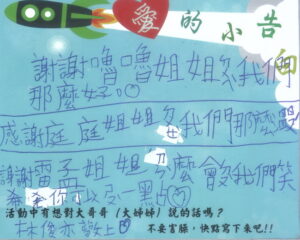 愛的小告白
謝謝嚕嚕姐姐 我們
那麼好
感謝庭庭姐姐 我們那麼
謝謝雷孟姐姐 麼會 我們笑
希 你 以 一點的
活動中有想對大哥哥（大姊姊）說的話嗎？
林俊亦敬上
不要害臊，快點寫下來吧!!